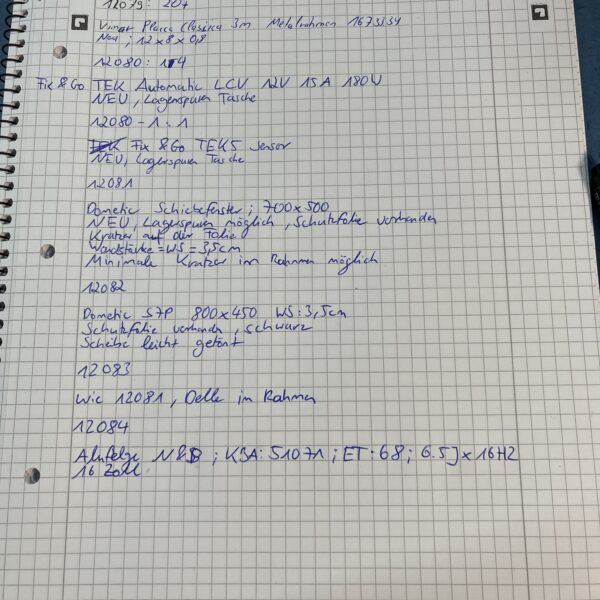 12079: 207
Vimar Placca Classica 3m Metalrahmen
Neu ; 12x8x0,8
12080: 114
Fix & Go TEK Automatic LCV 12V 15A 180W
NEU, Lagerspuren Tasche
12080-1: 1
Fix & Go TEK5 Sensor
NEU, Lagerspuren Tasche
12081
Dometic Schiebefenster ; 700x500
NEU, Lagerspuren möglich, Schutzfolie vorhanden
Kratzer auf der Folie
Wandstärke = WS = 3,5cm
Minimale Kratzer im Rahmen möglich
12082
Dometic S7P 800x450 WS: 3,5cm
Schutzfolie vorhanden, schwarz
Scheibe leicht getönt
12083
Wie 12081, Delle im Rahmen
12084
Alufelge ; KBA: 51071 ; ET: 68 ; 6.5Jx16H2
16 Zoll